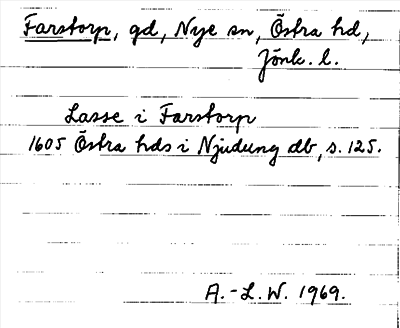 Farstorp, gd, Nye sn, Östra hd,
Jönk. l.
Lasse i Farstorp
1605 Östra hds i Njudung db, s. 125.
A.-L.W. 1969.